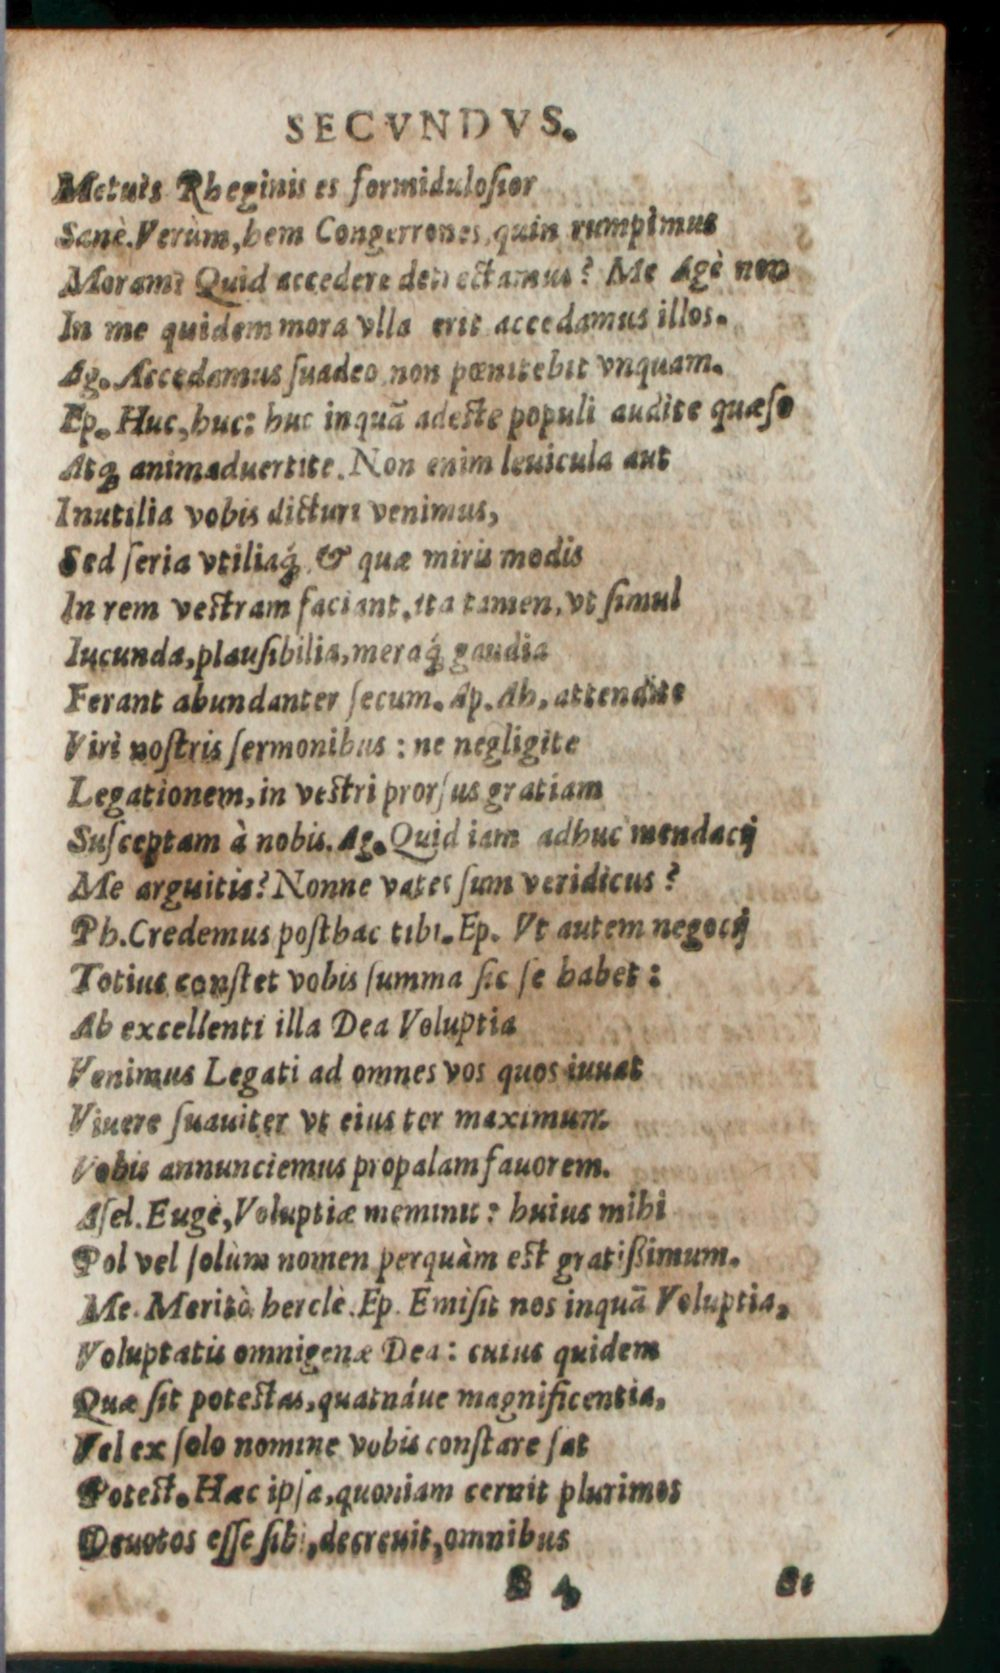 SECVNDVS.
Metuis Rheginis es formidulosior
Sanè. Verùm, hem Congerrones, quin rumpimus
Moram? Quid accedere detrectamus? Me Agè non
In me quidem mora vlla erit accedamus illos.
Ag. Accedamus suadeo non pœnitebit vnquam.
Ep. Huc, huc: huc inquã adeste populi audite quæso
Atq; animaduertite. Non enim leuicula aut
Inutilia vobis dicturi venimus,
Sed seria vtiliaq́; & quæ miris modis
In rem vestram faciant, ita tamen, vt simul
Iucunda, plausibilia, meraq́; gaudia
Ferant abundanter secum. Ap. Ah, attendite
Viri nostris sermonibus: ne negligite
Legationem, in vestri prorsus gratiam
Susceptam à nobis. Ag. Quid iam adhuc mendacij
Me arguitis? Nonne vates sum veridicus?
Ph. Credemus posthac tibi. Ep. Vt autem negocij
Totius constet vobis summa sic se habet:
Ab excellenti illa Dea Voluptia
Venimus Legati ad omnes vos quos iuuat
Viuere suauiter vt eius ter maximum
Vobis annunciemus propalam fauorem.
Asel. Eugè, Voluptiæ meminit? huius mihi
Pol vel solùm nomen perquàm est gratissimum.
Me. Meritò herclè. Ep. Emisit nos inquã Voluptia,
Voluptatis omnigenæ Dea: cuius quidem
Quæ sit potestas, quatnáue magnificentia,
Vel ex solo nomine vobis constare sat
Potest. Hæc ipsa, quoniam cernit plurimos
Deuotos esse sibi, decreuit, omnibus
B 4 Si